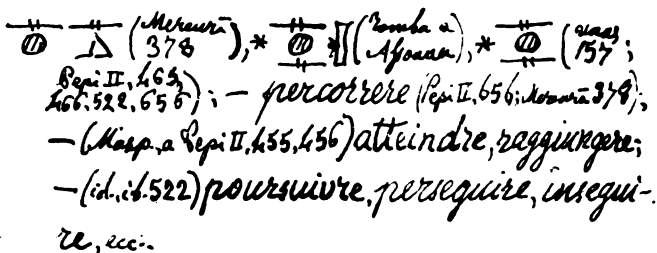 (Merenrā 378), * (Tomba a Assouan), * (Unas 157;
Pepi II, 466, 522, 656); — percorrere (Pepi II, 656; Merenrā 378);
— (Masp. a Pepi II, 455, 456) atteindre, raggiungere;
— (id. ib. 522) poursuivre, perseguire, insegui-
re, ecc:.